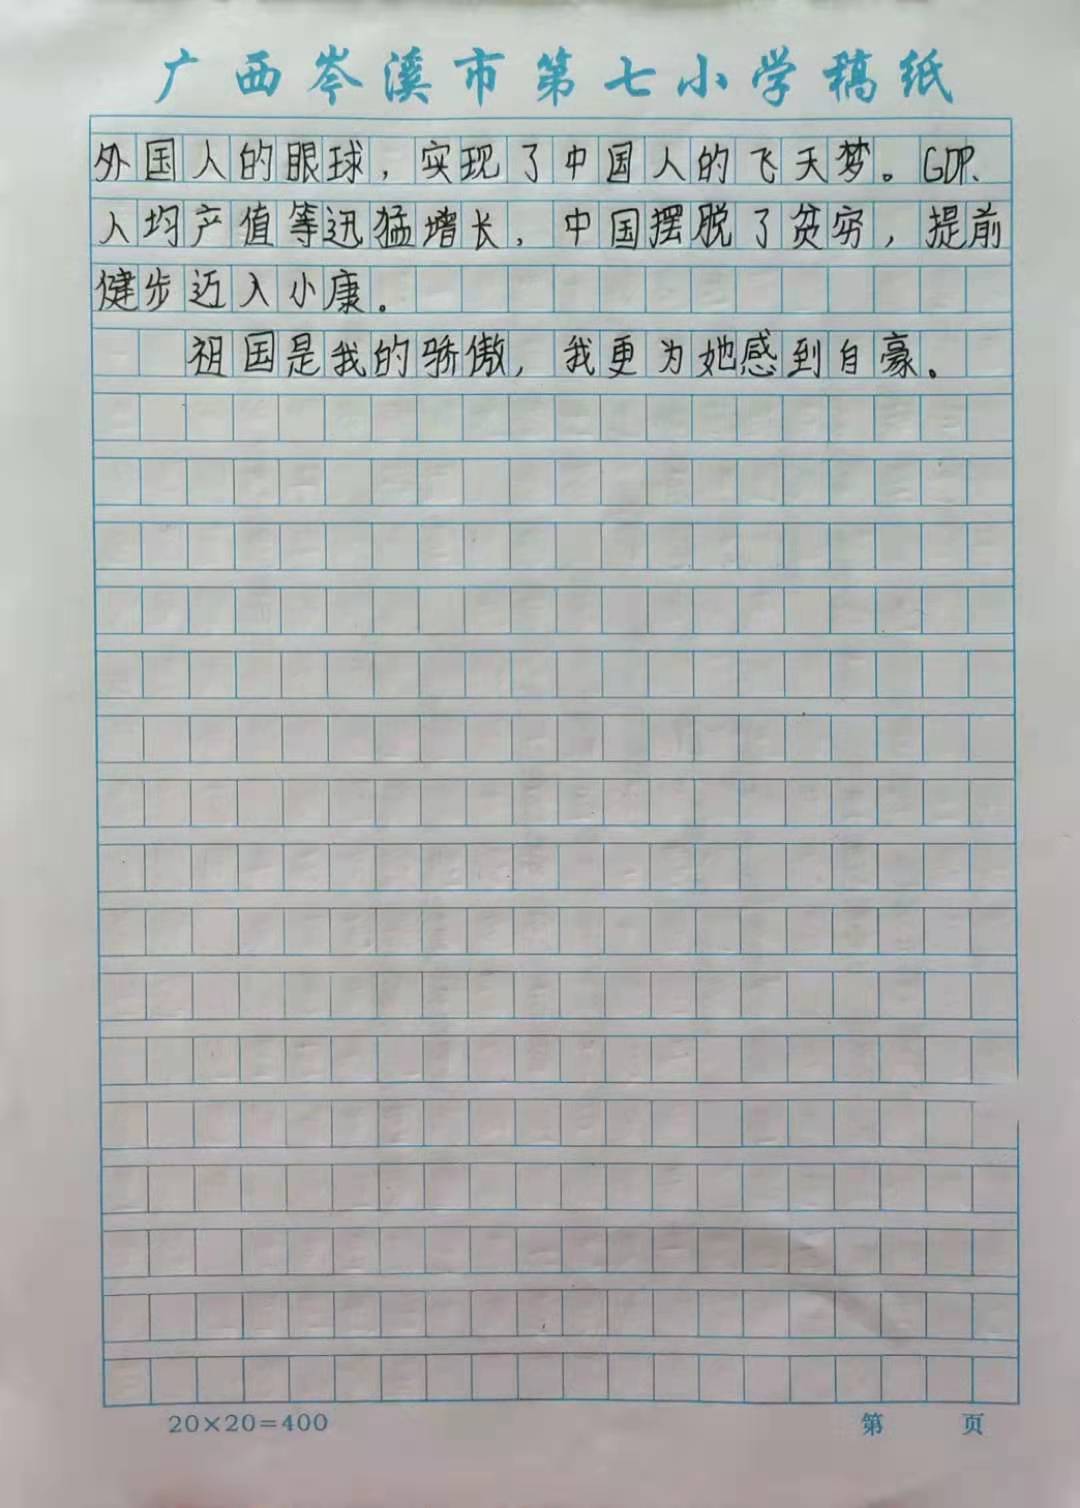 广西岑溪市第七小学稿纸
外国人的眼球，实现了中国人的飞天梦。GDP、
人均产值等迅猛增长，中国摆脱了贫穷，提前
健步迈入小康。
祖国是我的骄傲，我更为她感到自豪。
20×20=400
第 页